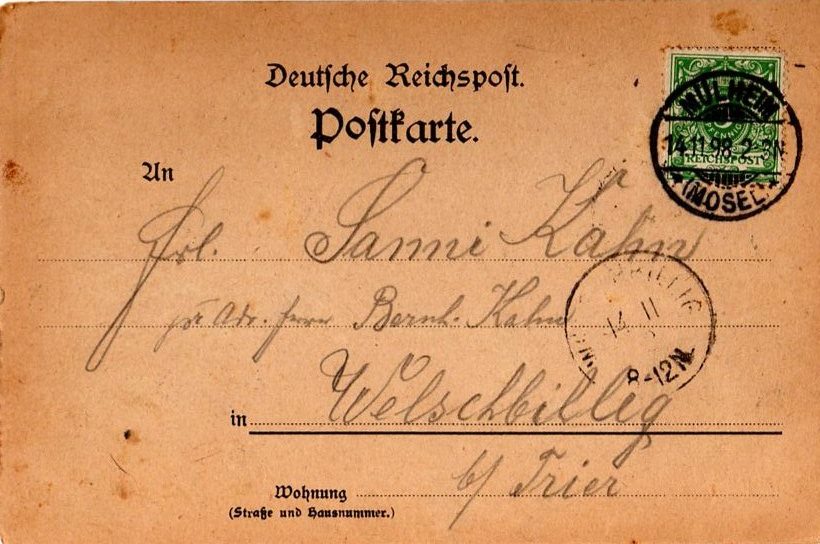 Deutsche Reichspost.
Postkarte.
MÜLHEIM
14.11.98. 2-3N
(MOSEL)
PFENNIG
REICHSPOST
An
Frl. Sanni Kahn
pr Adr. Herrn Bernh. Kahn
14 11
8-12N
in Welschbillig
b/ Trier
Wohnung
(Straße und Hausnummer.)